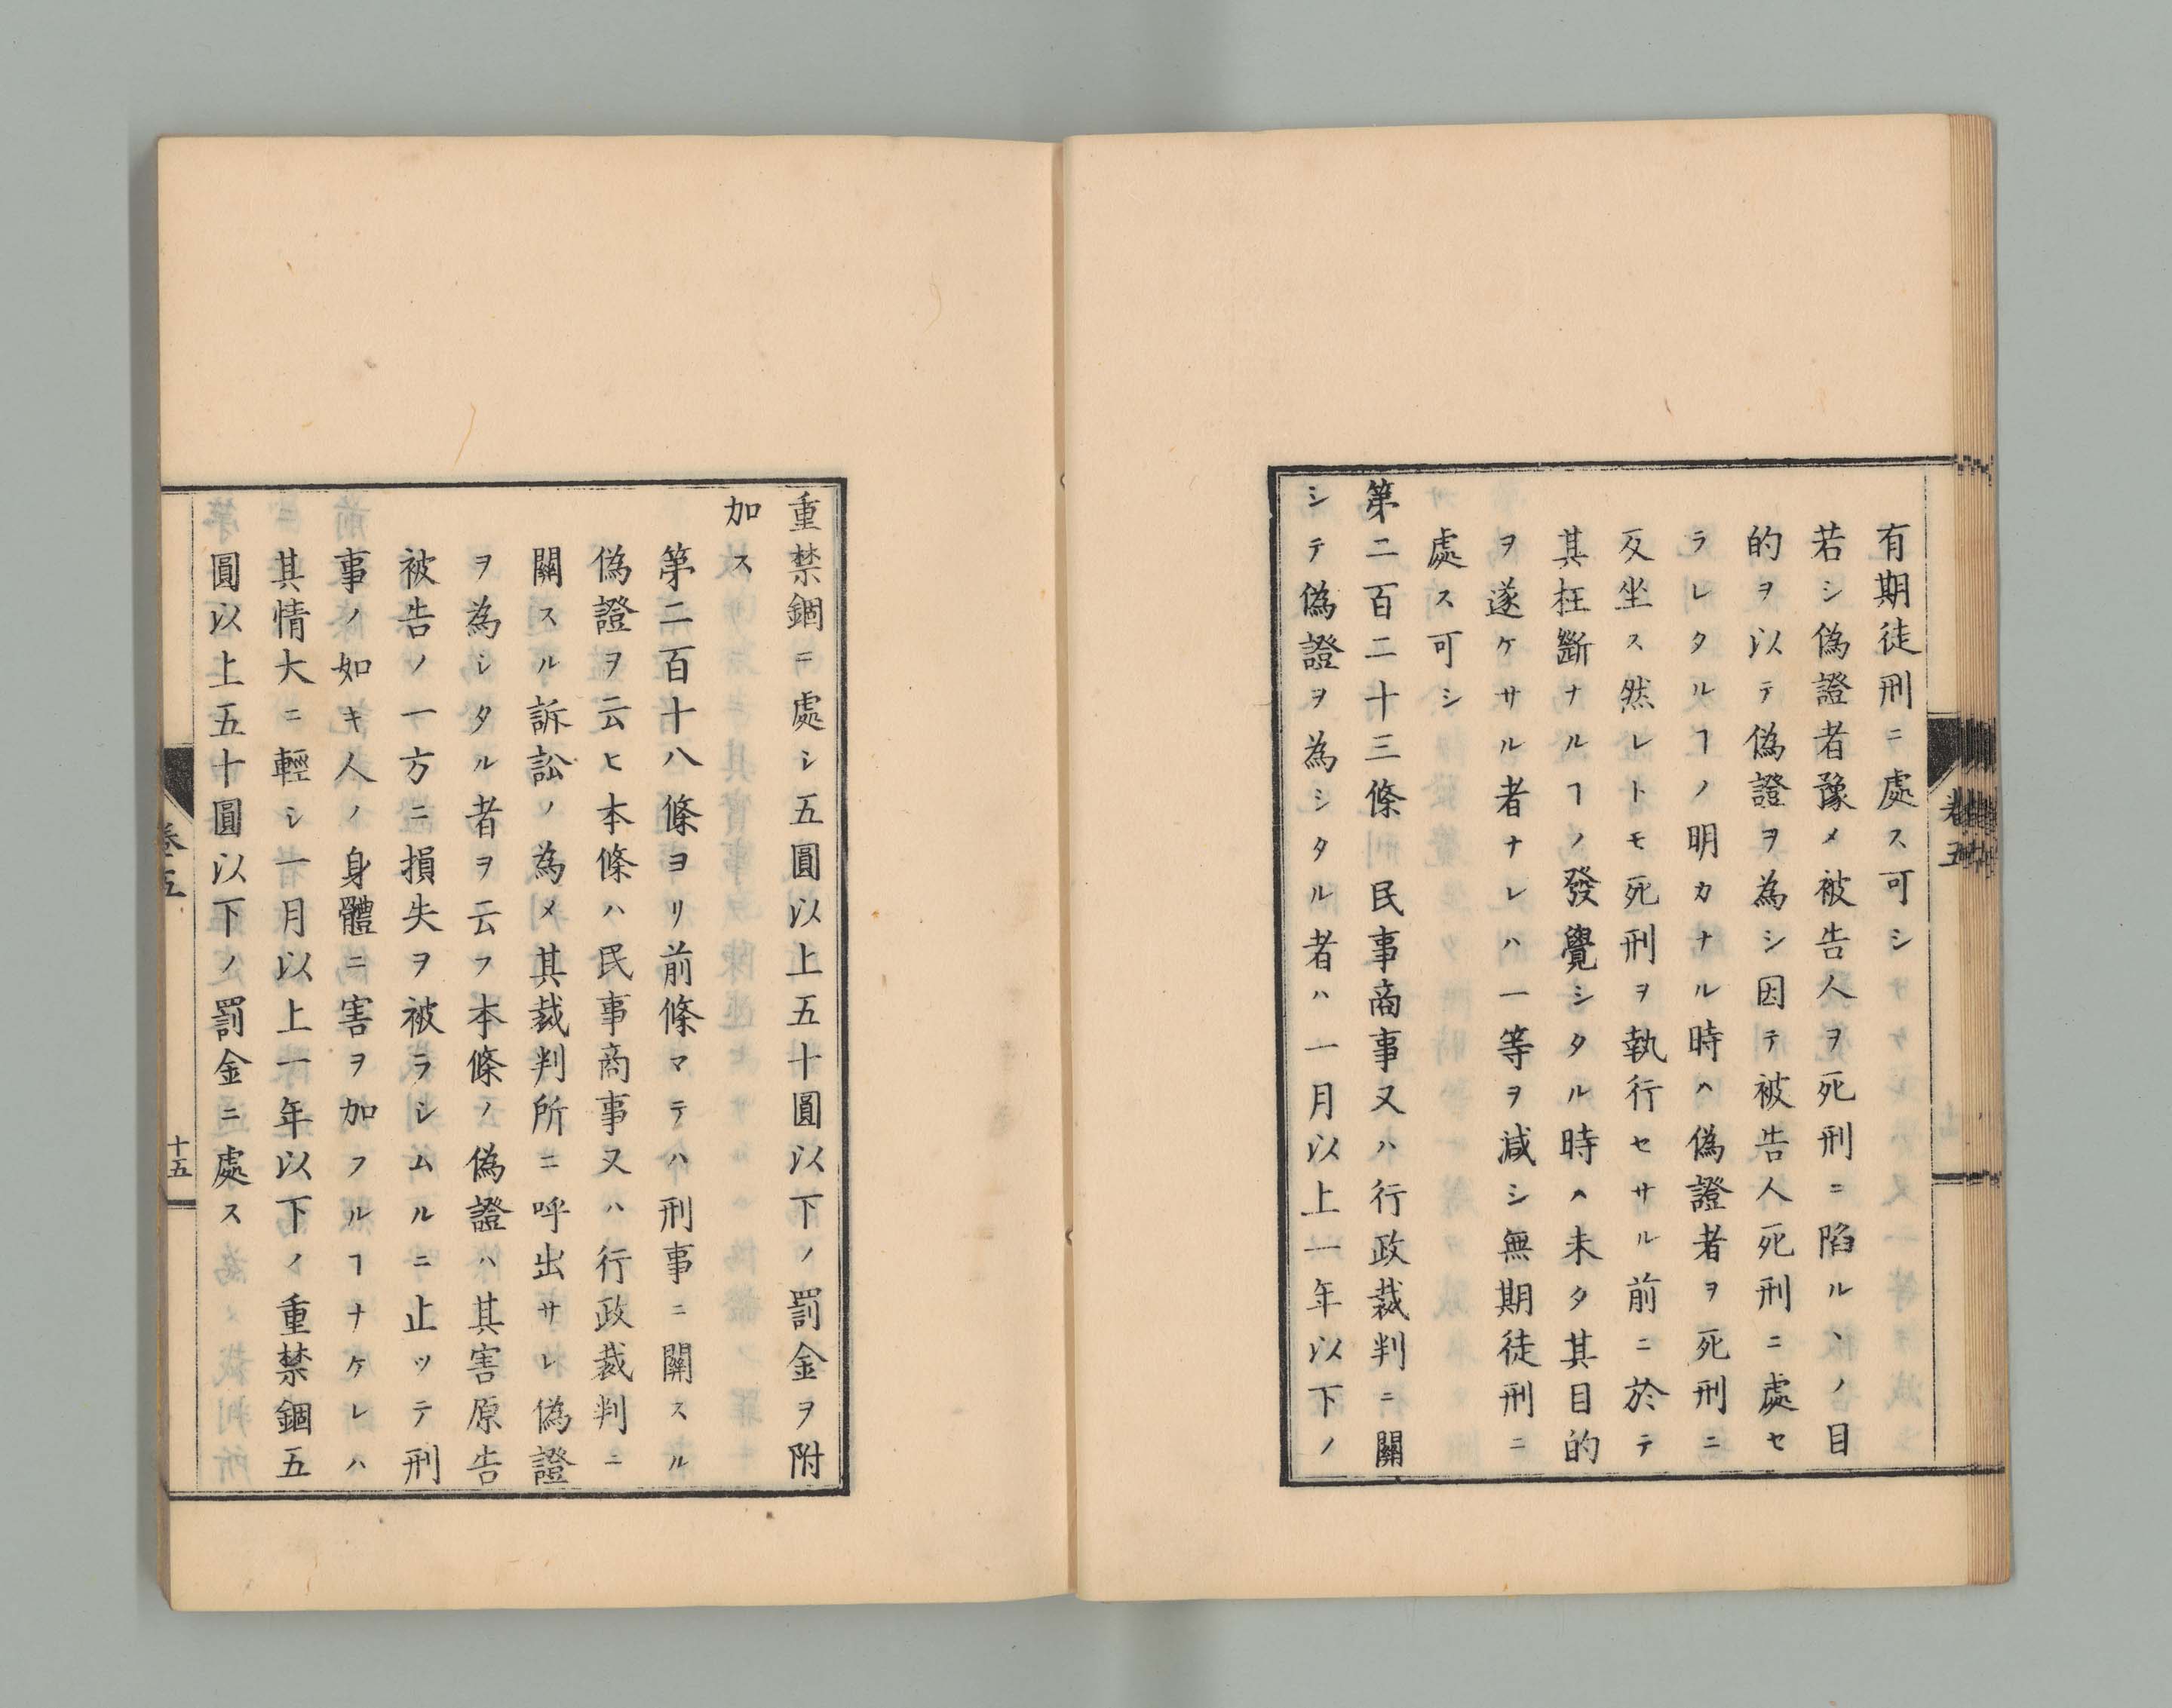 有期徒刑ニ處ス可シ
若シ偽證者豫メ被告人ヲ死刑ニ陷ルヽノ目
的ヲ以テ偽證ヲ為シ因テ被告人死刑ニ處セ
ラレタルヿノ明カナル時ハ偽證者ヲ死刑ニ
反坐ス然レトモ死刑ヲ執行セサル前ニ於テ
其枉斷ナルヿノ發覺シタル時ハ未タ其目的
ヲ遂ケサル者ナレハ一等ヲ減シ無期徒刑ニ
處ス可シ
第二百二十三條 民事商事又ハ行政裁判ニ關
シテ偽證ヲ為シタル者ハ一月以上一年以下ノ
卷五
重禁錮ニ處シ五圓以上五十圓以下ノ罰金ヲ附
加ス
第二百十八條ヨリ前條マテハ刑事ニ關スル
偽證ヲ云ヒ本條ハ民事商事又ハ行政裁判ニ
關スル訴訟ノ為メ其裁判所ニ呼出サレ偽證
ヲ為シタル者ヲ云フ本條ノ偽證ハ其害原告
被告ノ一方ニ損失ヲ被ラシムルニ止ツテ刑
事ノ如キ人ノ身體ニ害ヲ加フルヿナケレハ
其情大ニ輕シ一月以上一年以下ノ重禁錮五
圓以上五十圓以下ノ罰金ニ處ス
卷五
十五